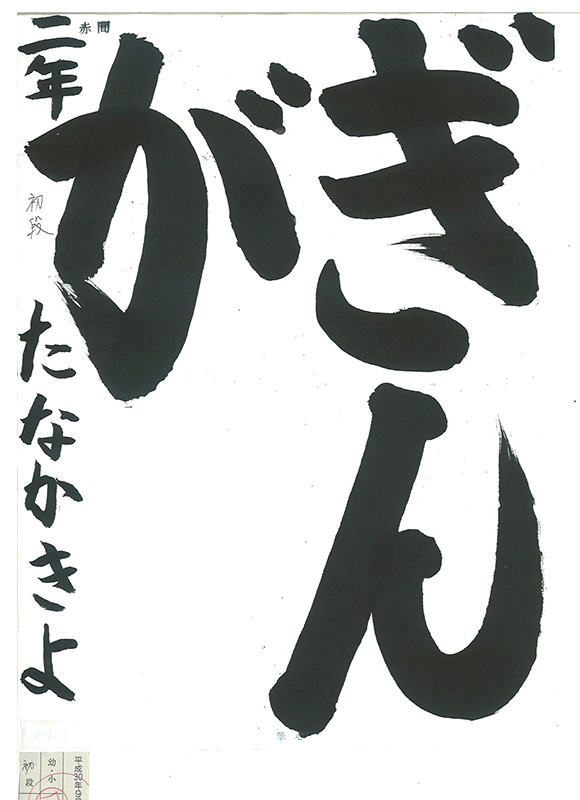 ぎん
が
二年
初段
たなかきよ
赤間
平成30年9
幼・小
初段